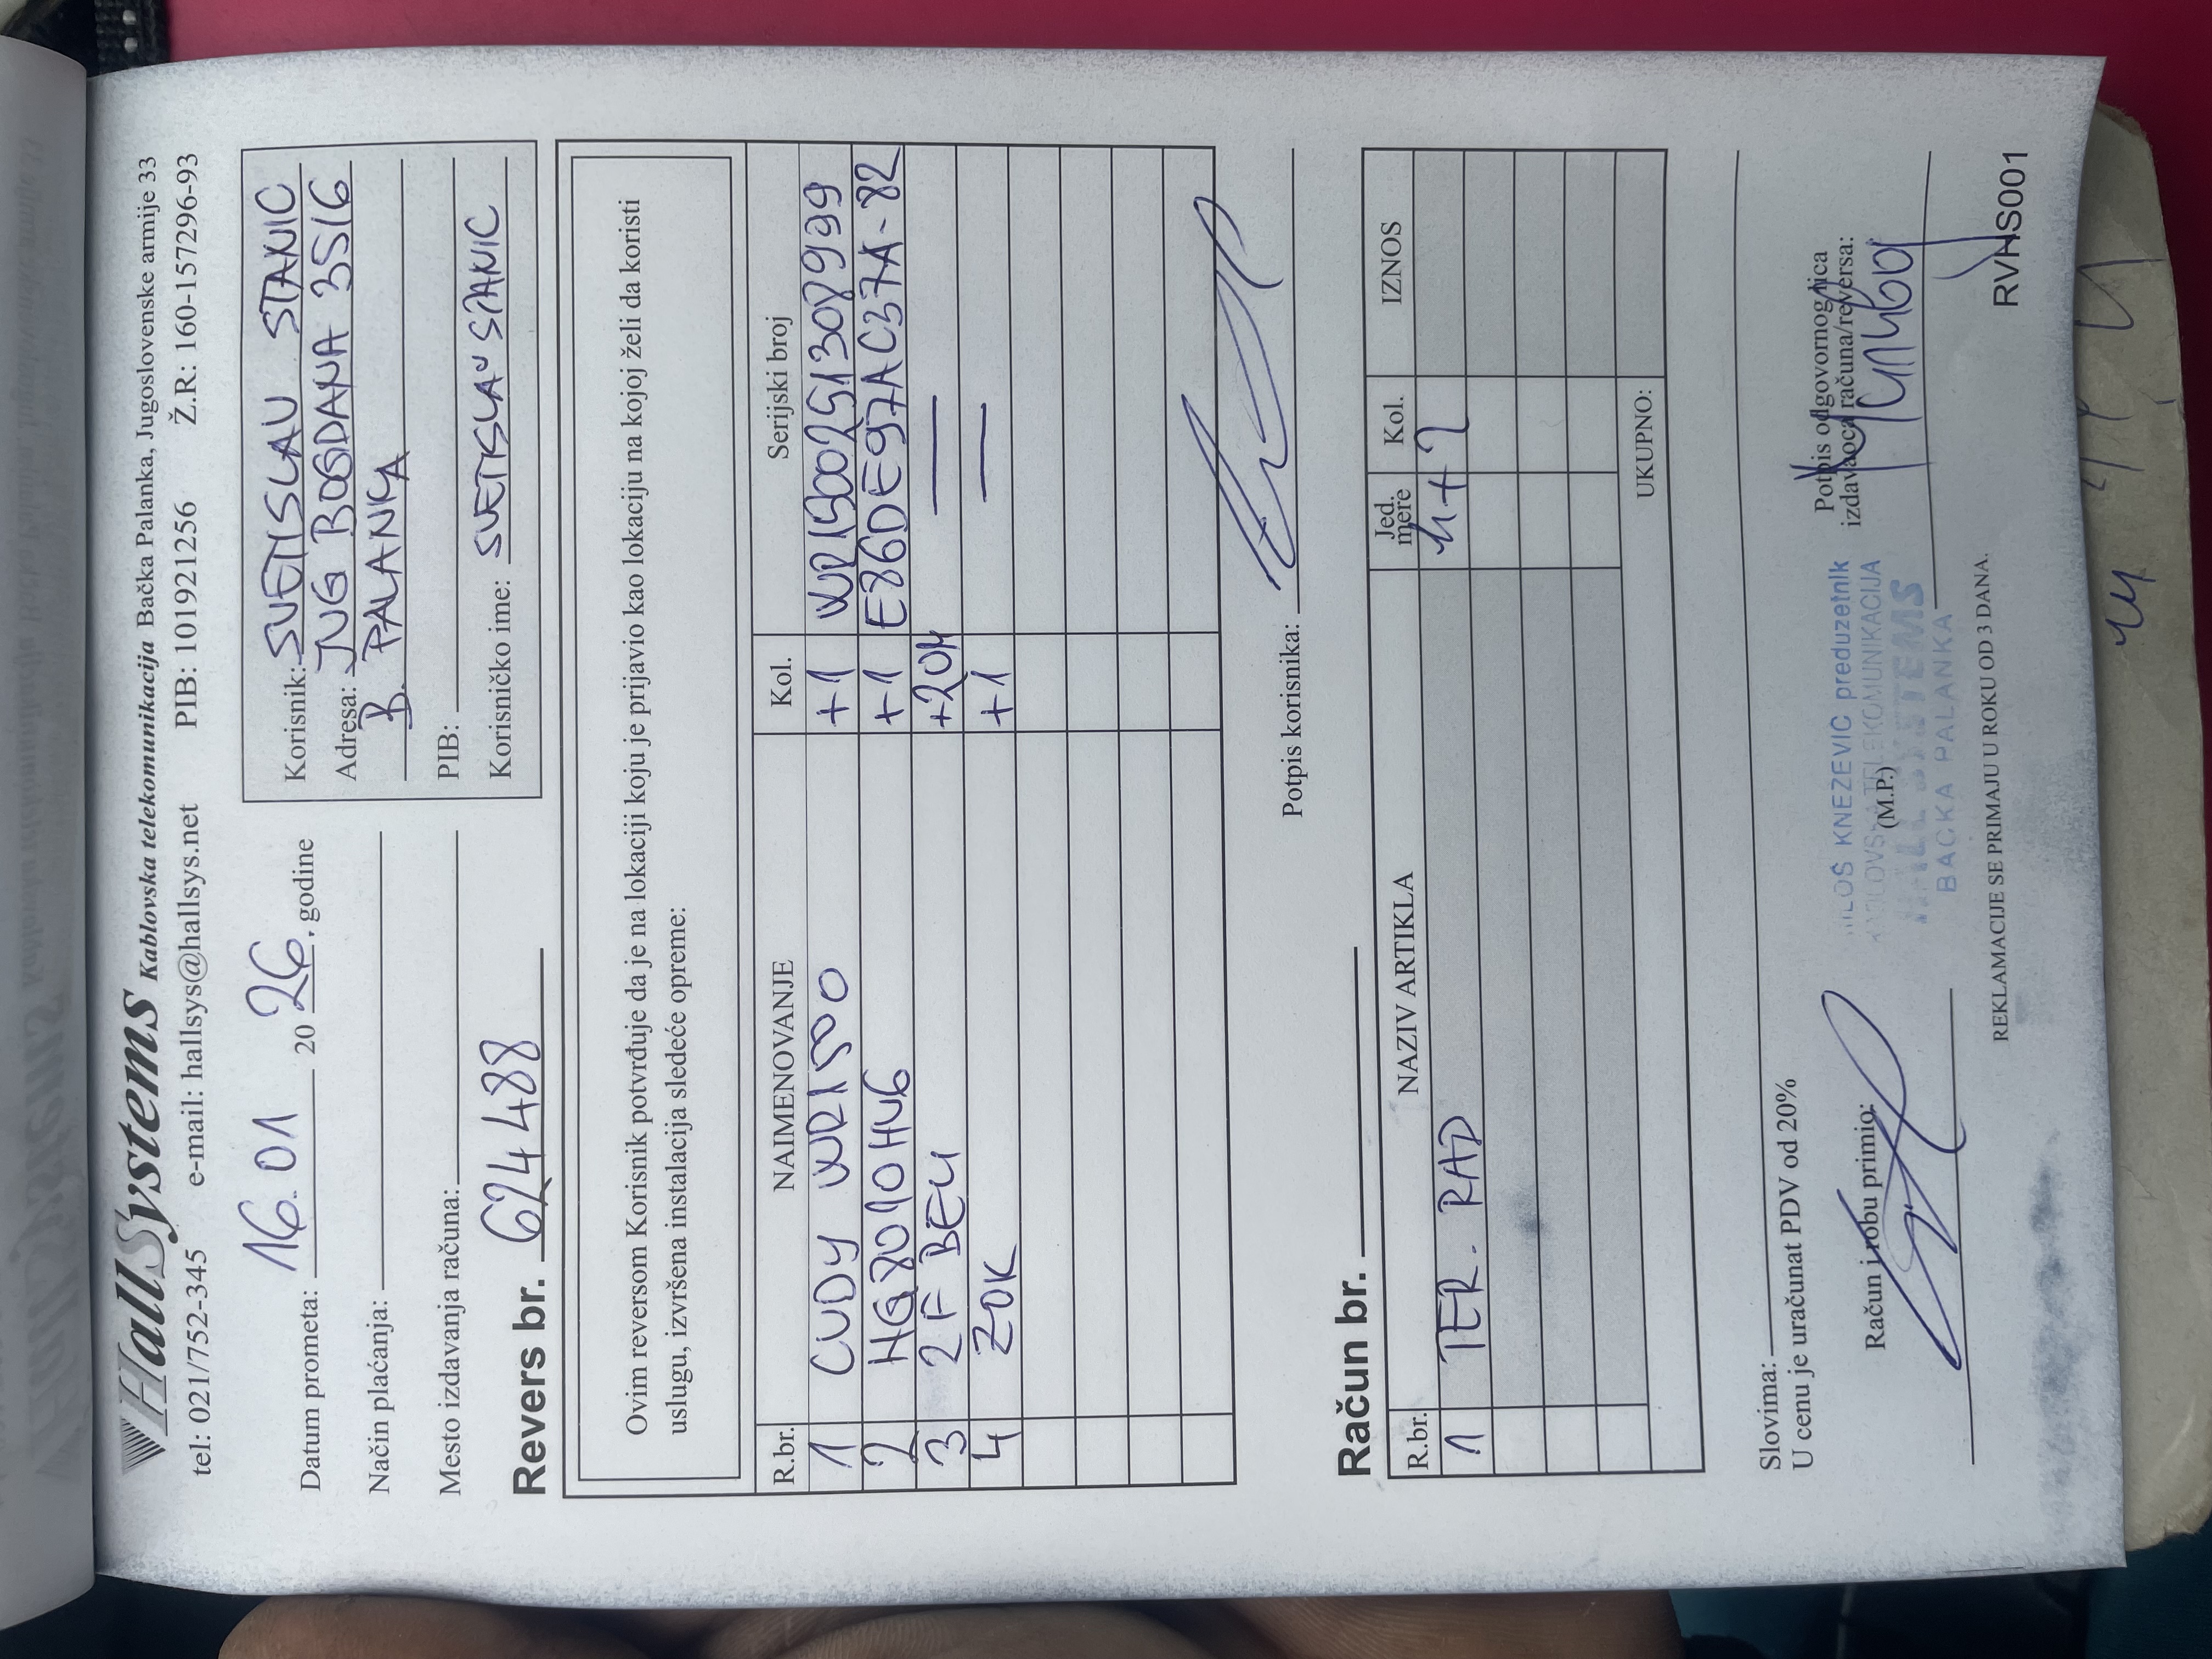 HallSystems Kablovska telekomunikacija Bačka Palanka, Jugoslovenske armije 33
tel: 021/752-345 e-mail: hallsys@hallsys.net PIB: 101921256 Ž.R: 160-157296-93
Datum prometa: 16.01 20 26, godine
Način plaćanja:
Mesto izdavanja računa:
Revers br. 624488
Korisnik: SVETISLAV STANIC
Adresa: JNG BOGDANA 3516
B. PALANKA
PIB:
Korisničko ime: SVETISLAV STANIC
Ovim reversom Korisnik potvrđuje da je na lokaciji koju je prijavio kao lokaciju na kojoj želi da koristi
uslugu, izvršena instalacija sledeće opreme:
R.br. NAIMENOVANJE Kol. Serijski broj
1 CUDY WR1500 +1 WR15002513089999
2 HG8010HV6 +1 E86DE97AC37A-82
3 2F BELI +20M —
4 ZOK +1 —
Potpis korisnika:
Račun br.
R.br. NAZIV ARTIKLA Jed. mere Kol. IZNOS
1 TER. RAD h +2
UKUPNO:
Slovima:
U cenu je uračunat PDV od 20%
Račun i robu primio:
MILOŠ KNEZEVIC preduzetnik
KABLOVSKA TELEKOMUNIKACIJA
HALL SYSTEMS
BACKA PALANKA
(M.P.)
Potpis odgovornog lica
izdavaoca računa/reversa:
REKLAMACIJE SE PRIMAJU U ROKU OD 3 DANA.
RVHS001